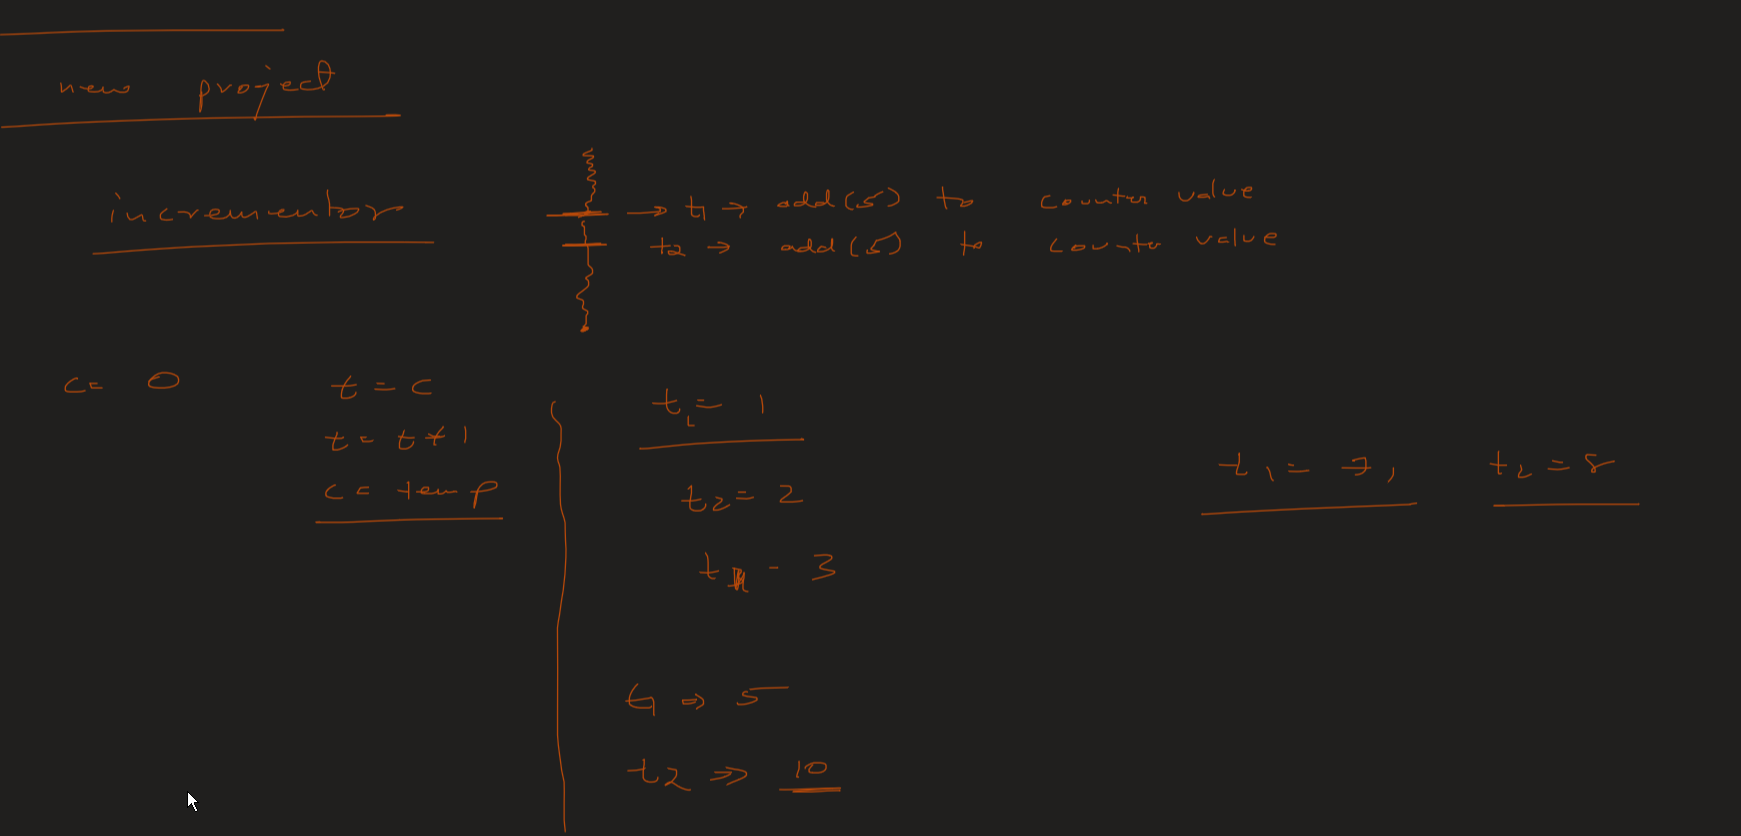 new project
incrementor
→ t1 → add(5) to counter value
t2 → add(5) to counter value
c = 0
t = c
t = t + 1
c = temp
t1 = 1
t2 = 2
t - 3
t1 = 7, t2 = 8
t1 ⇒ 5
t2 ⇒ 10